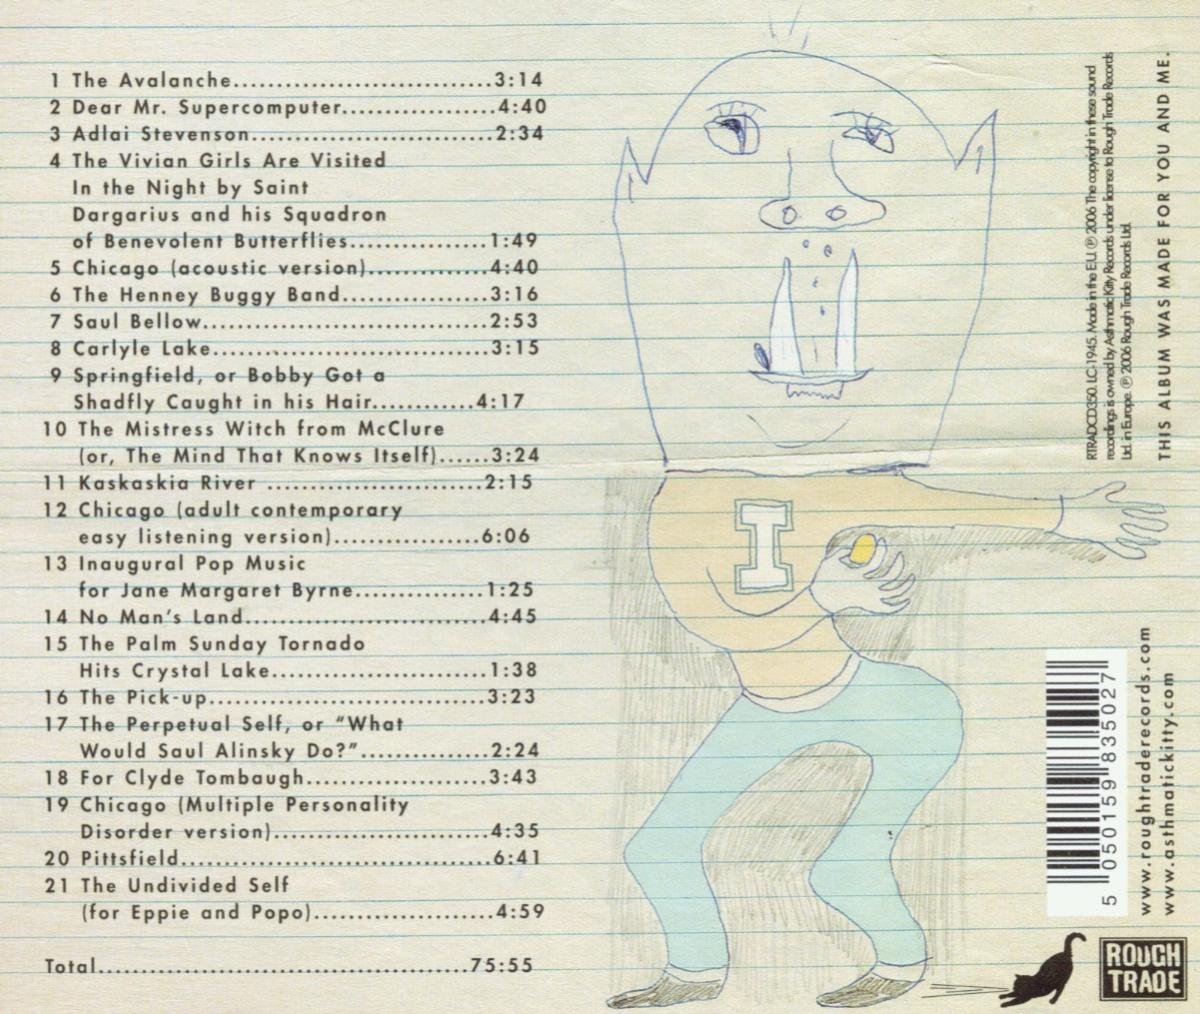 1 The Avalanche..............................3:14
2 Dear Mr. Supercomputer..................4:40
3 Adlai Stevenson............................2:34
4 The Vivian Girls Are Visited
In the Night by Saint
Dargarius and his Squadron
of Benevolent Butterflies................1:49
5 Chicago (acoustic version)..............4:40
6 The Henney Buggy Band.................3:16
7 Saul Bellow.................................2:53
8 Carlyle Lake................................3:15
9 Springfield, or Bobby Got a
Shadfly Caught in his Hair............4:17
10 The Mistress Witch from McClure
(or, The Mind That Knows Itself)......3:24
11 Kaskaskia River .........................2:15
12 Chicago (adult contemporary
easy listening version).................6:06
13 Inaugural Pop Music
for Jane Margaret Byrne...............1:25
14 No Man's Land............................4:45
15 The Palm Sunday Tornado
Hits Crystal Lake.........................1:38
16 The Pick-up................................3:23
17 The Perpetual Self, or “What
Would Saul Alinsky Do?”...............2:24
18 For Clyde Tombaugh.....................3:43
19 Chicago (Multiple Personality
Disorder version).........................4:35
20 Pittsfield....................................6:41
21 The Undivided Self
(for Eppie and Popo).....................4:59
Total...........................................75:55
I
RTRADCD350. LC-1945. Made in the EU. ℗ 2006 The copyright in these sound
recordings is owned by Asthmatic Kitty Records under license to Rough Trade Records
Ltd. in Europe. ℗ 2006 Rough Trade Records Ltd.
THIS ALBUM WAS MADE FOR YOU AND ME.
5 050159 835027
www.roughtraderecords.com
www.asthmatickitty.com
ROUGH
TRADE